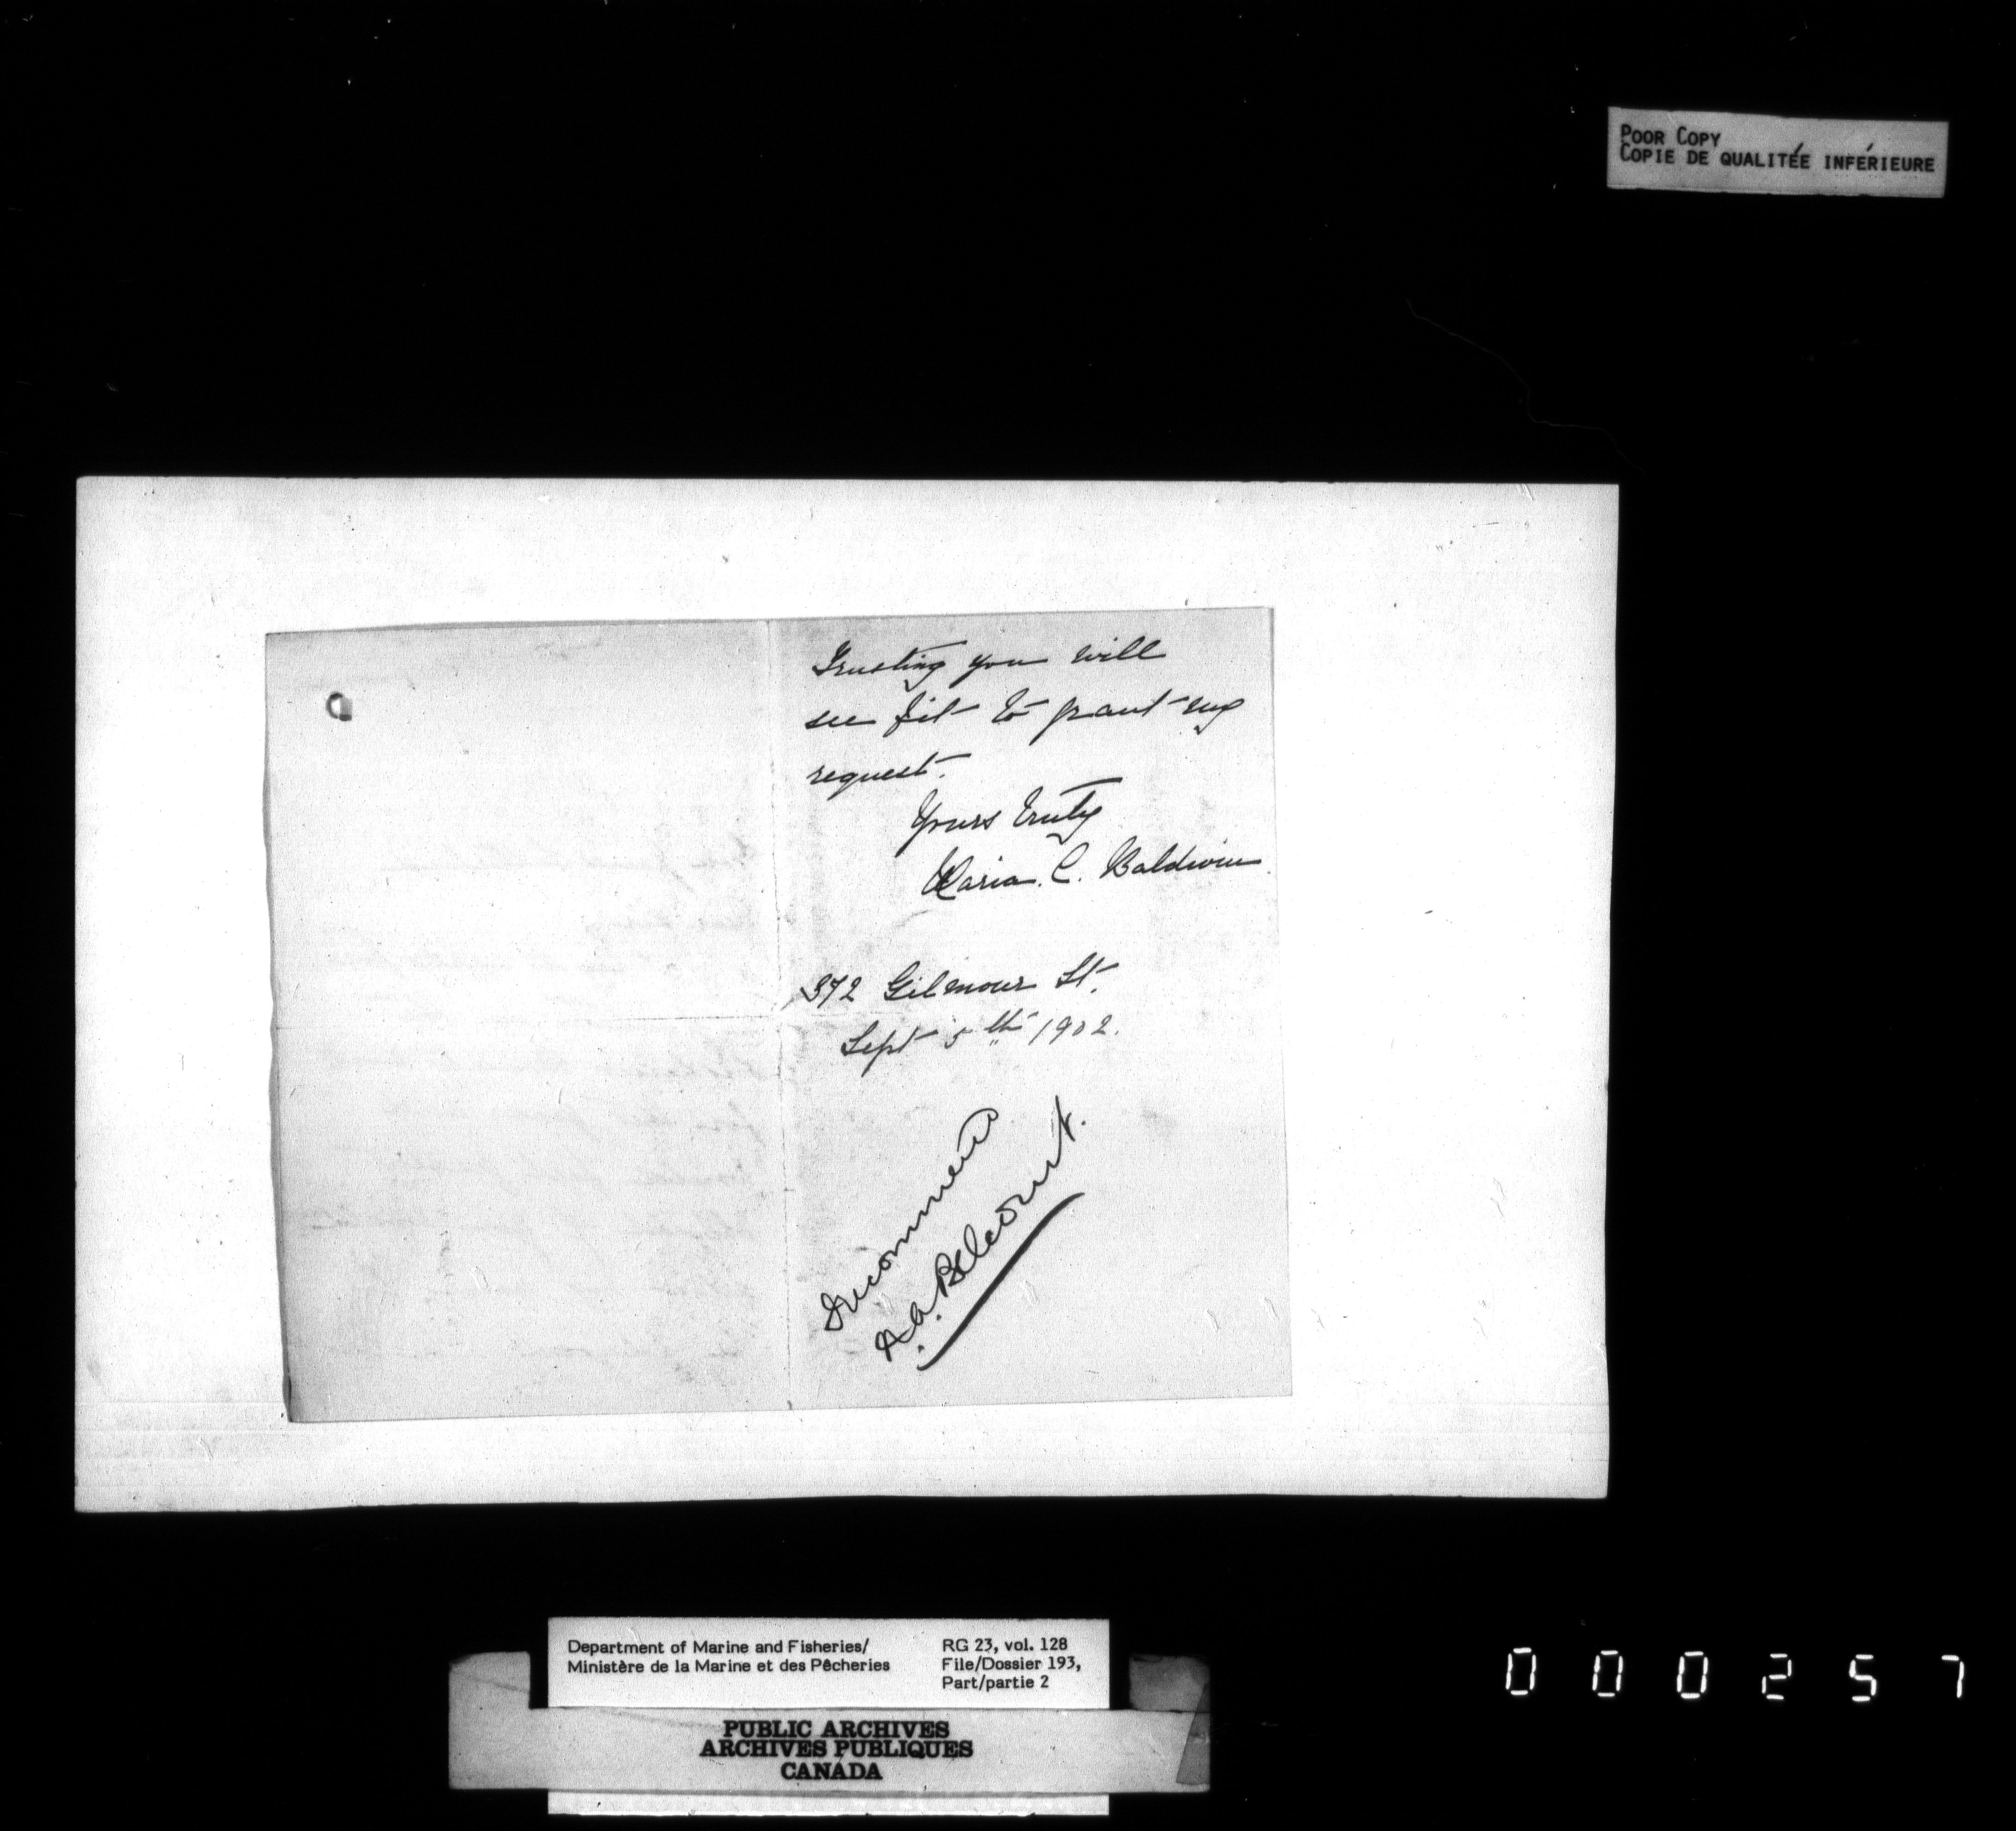 POOR COPY
COPIE DE QUALITÉE INFÉRIEURE
Trusting you will
see fit to grant my
request.
Yours truly
Maria. C. Baldwin.
372 Gilmour St.
Sept 5th 1902.
I recommend
N. A. Belcourt.
Department of Marine and Fisheries/
Ministère de la Marine et des Pêcheries
RG 23, vol. 128
File/Dossier 193,
Part/partie 2
PUBLIC ARCHIVES
ARCHIVES PUBLIQUES
CANADA
000257